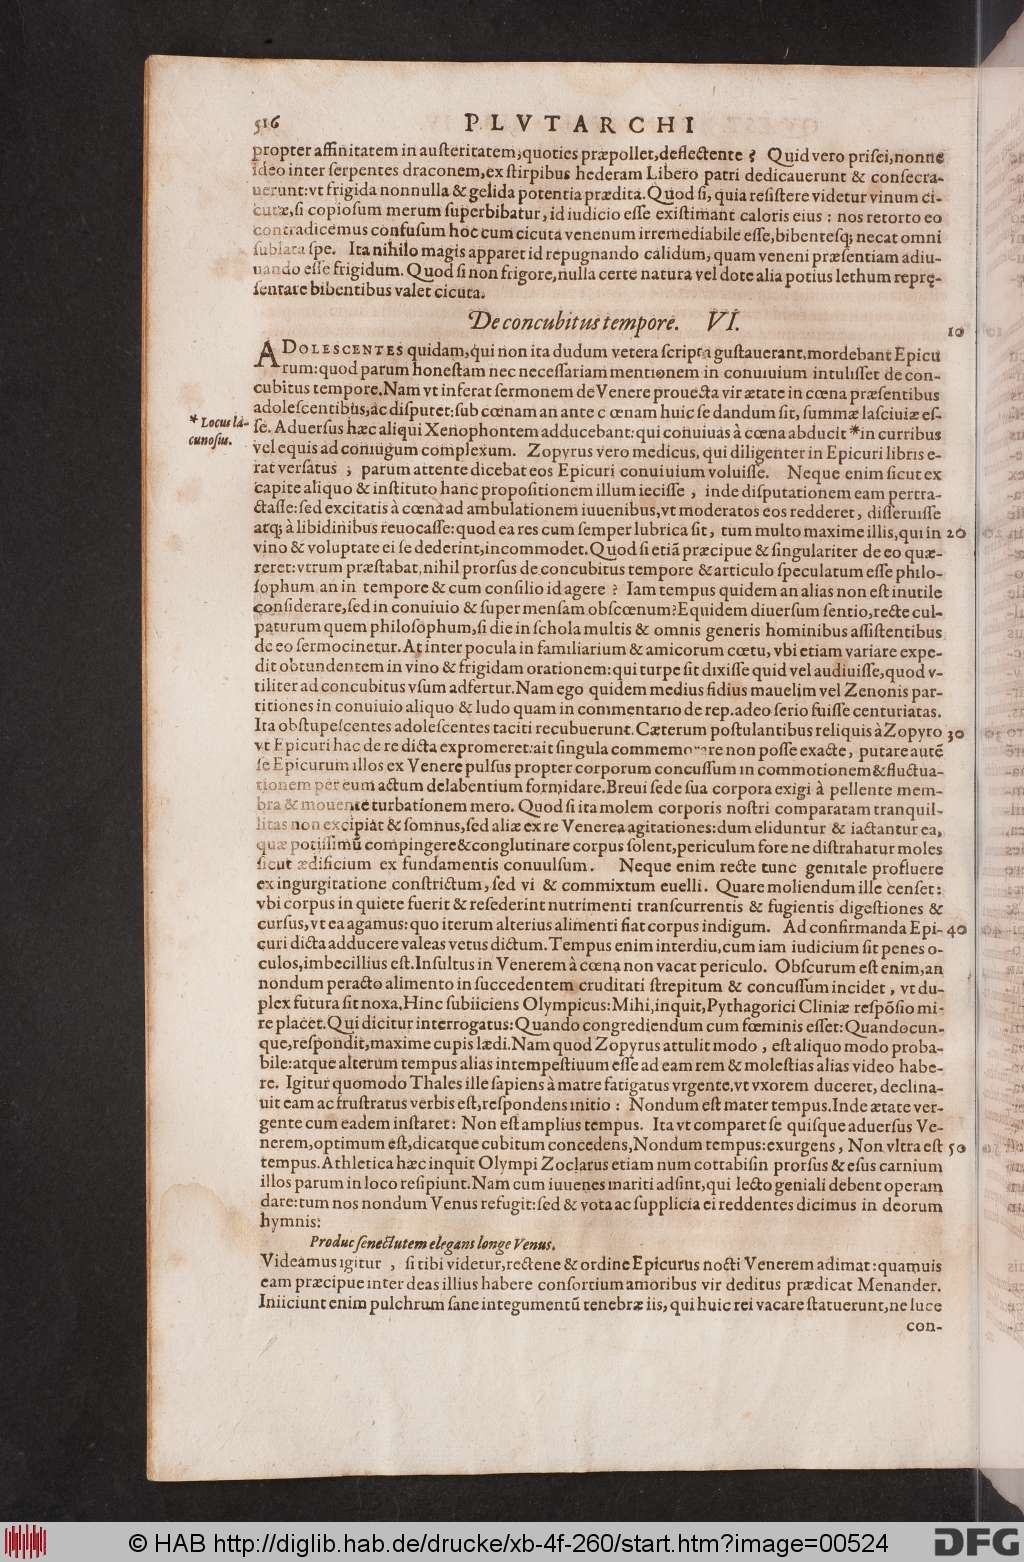 516
PLVTARCHI
propter affinitatem in austeritatem; quoties præpollet, deflectente? Quid vero prisci, nonne
ideo inter serpentes draconem, ex stirpibus hederam Libero patri dedicauerunt & consecra-
uerunt: vt frigida nonnulla & gelida potentia prædita. Quod si, quia resistere videtur vinum ci-
cutæ, si copiosum merum superbibatur, id iudicio esse existimant caloris eius: nos retorto eo
contradicemus confusum hoc cum cicuta venenum irremediabile esse, bibentesq; necat omni
sublata spe. Ita nihilo magis apparet id repugnando calidum, quam veneni præsentiam adiu-
uando esse frigidum. Quod si non frigore, nulla certe natura vel dote alia potius lethum reprę-
sentare bibentibus valet cicuta.
De concubitus tempore. VI.
10
ADOLESCENTES quidam, qui non ita dudum vetera scripta gustauerant, mordebant Epicu
rum: quod parum honestam nec necessariam mentionem in conuiuium intulisset de con-
cubitus tempore. Nam vt inferat sermonem de Venere prouecta vir ætate in cœna præsentibus
adolescentibus, ac disputet: sub cœnam an ante cœnam huic se dandum sit, summæ lasciuiæ es-
* Locus la-
cunosus.
se. Aduersus hæc aliqui Xenophontem adducebant: qui conuiuas à cœna abducit *in curribus
vel equis ad coniugum complexum. Zopyrus vero medicus, qui diligenter in Epicuri libris e-
rat versatus; parum attente dicebat eos Epicuri conuiuium voluisse. Neque enim sicut ex
capite aliquo & instituto hanc propositionem illum iecisse, inde disputationem eam pertra-
ctasse: sed excitatis à cœna ad ambulationem iuuenibus, vt moderatos eos redderet, disseruisse
atq; à libidinibus reuocasse: quod ea res cum semper lubrica sit, tum multo maxime illis, qui in 20
vino & voluptate ei se dederint, incommodet. Quod si etiã præcipue & singulariter de eo quæ-
reret: vtrum præstabat, nihil prorsus de concubitus tempore & articulo speculatum esse philo-
sophum an in tempore & cum consilio id agere? Iam tempus quidem an alias non est inutile
considerare, sed in conuiuio & super mensam obscœnum? Equidem diuersum sentio, recte cul-
paturum quem philosophum, si die in schola multis & omnis generis hominibus assistentibus
de eo sermocinetur. At inter pocula in familiarium & amicorum cœtu, vbi etiam variare expe-
dit obtundentem in vino & frigidam orationem: qui turpe sit dixisse quid vel audiuisse, quod v-
tiliter ad concubitus vsum adfertur. Nam ego quidem medius fidius mauelim vel Zenonis par-
titiones in conuiuio aliquo & ludo quam in commentario de rep. adeo serio fuisse centuriatas.
Ita obstupescentes adolescentes taciti recubuerunt. Cæterum postulantibus reliquis à Zopyro 30
vt Epicuri hac de re dicta expromeret: ait singula commemorare non posse exacte, putare autē
se Epicurum illos ex Venere pulsus propter corporum concussum in commotionem & fluctua-
tionem per eum actum delabentium formidare. Breui sede sua corpora exigi à pellente mem-
bra & mouente turbationem mero. Quod si ita molem corporis nostri comparatam tranquil-
litas non excipiat & somnus, sed aliæ ex re Venerea agitationes: dum eliduntur & iactantur ea,
quæ potissimū compingere & conglutinare corpus solent, periculum fore ne distrahatur moles
sicut ædificium ex fundamentis conuulsum. Neque enim recte tunc genitale profluere
ex ingurgitatione constrictum, sed vi & commixtum euelli. Quare moliendum ille censet:
vbi corpus in quiete fuerit & resederint nutrimenti transcurrentis & fugientis digestiones &
cursus, vt ea agamus: quo iterum alterius alimenti fiat corpus indigum. Ad confirmanda Epi- 40
curi dicta adducere valeas vetus dictum. Tempus enim interdiu, cum iam iudicium sit penes o-
culos, imbecillius est. Insultus in Venerem à cœna non vacat periculo. Obscurum est enim, an
nondum peracto alimento in succedentem cruditati strepitum & concussum incidet, vt du-
plex futura sit noxa. Hinc subiiciens Olympicus: Mihi, inquit, Pythagorici Cliniæ respõsio mi-
re placet. Qui dicitur interrogatus: Quando congrediendum cum fœminis esset: Quandocun-
que, respondit, maxime cupis lædi. Nam quod Zopyrus attulit modo, est aliquo modo proba-
bile: atque alterum tempus alias intempestiuum esse ad eam rem & molestias alias video habe-
re. Igitur quomodo Thales ille sapiens à matre fatigatus vrgente, vt vxorem duceret, declina-
uit eam ac frustratus verbis est, respondens initio: Nondum est mater tempus. Inde ætate ver-
gente cum eadem instaret: Non est amplius tempus. Ita vt comparet se quisque aduersus Ve-
nerem, optimum est, dicatque cubitum concedens, Nondum tempus: exurgens, Non vltra est 50
tempus. Athletica hæc inquit Olympi Zoclarus etiam num cottabisin prorsus & esus carnium
illos parum in loco resipiunt. Nam cum iuuenes mariti adsint, qui lecto geniali debent operam
dare: tum nos nondum Venus refugit: sed & vota ac supplicia ei reddentes dicimus in deorum
hymnis:
Produc senectutem elegans longe Venus.
Videamus igitur, si tibi videtur, rectene & ordine Epicurus nocti Venerem adimat: quamuis
eam præcipue inter deas illius habere consortium amoribus vir deditus prædicat Menander.
Iniiciunt enim pulchrum sane integumentū tenebræ iis, qui huic rei vacare statuerunt, ne luce
con-
© HAB http://diglib.hab.de/drucke/xb-4f-260/start.htm?image=00524
DFG